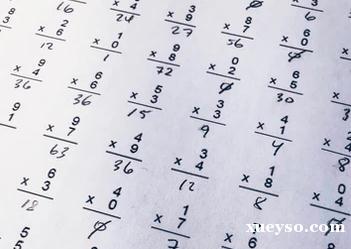 16
× 4
24
3
× 9
27
8
× 7
56
6
× 0
0
2
× 6
12
1
× 0
1
9
× 8
72
0
× 2
0
6
× 5
30
9
× 4
36
6
× 6
36
5
× 3
15
3
× 3
9
4
× 1
4
2
× 4
8
9
1
9
× 7
63
4
× 9
36
3
× 4
12
1
× 8
8
0
× 4
5
5
6
× 3
18
4
× 0
0
1
× 7
7
xueyso.com